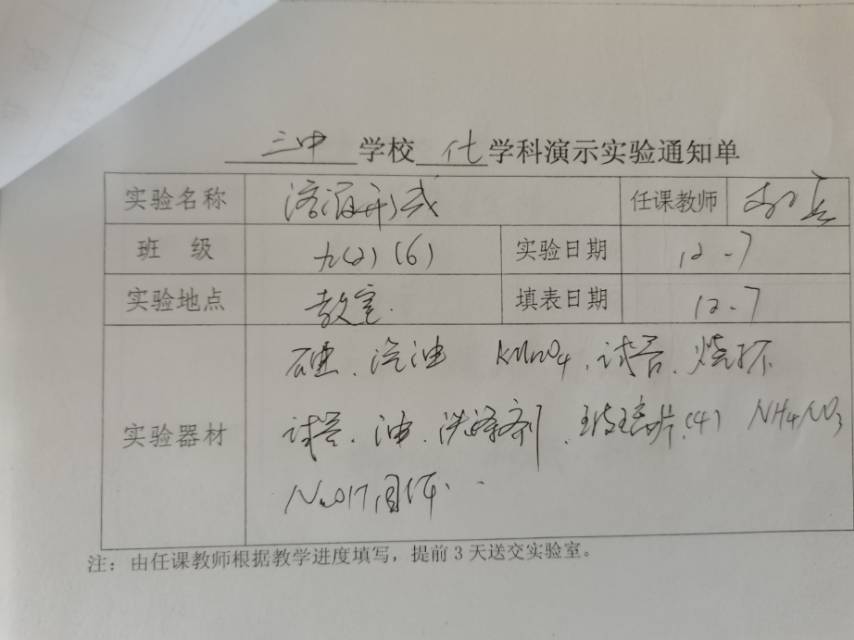 三中 学校 化 学科演示实验通知单
实验名称 溶液形成 任课教师
班 级 九(2)(6) 实验日期 12-7
实验地点 教室. 填表日期 12.7
碘、汽油 KMnO4、试管、烧杯
实验器材 试管、油、洗涤剂、玻璃片(4) NH4NO3
NaOH固体.
注：由任课教师根据教学进度填写，提前3天送交实验室。